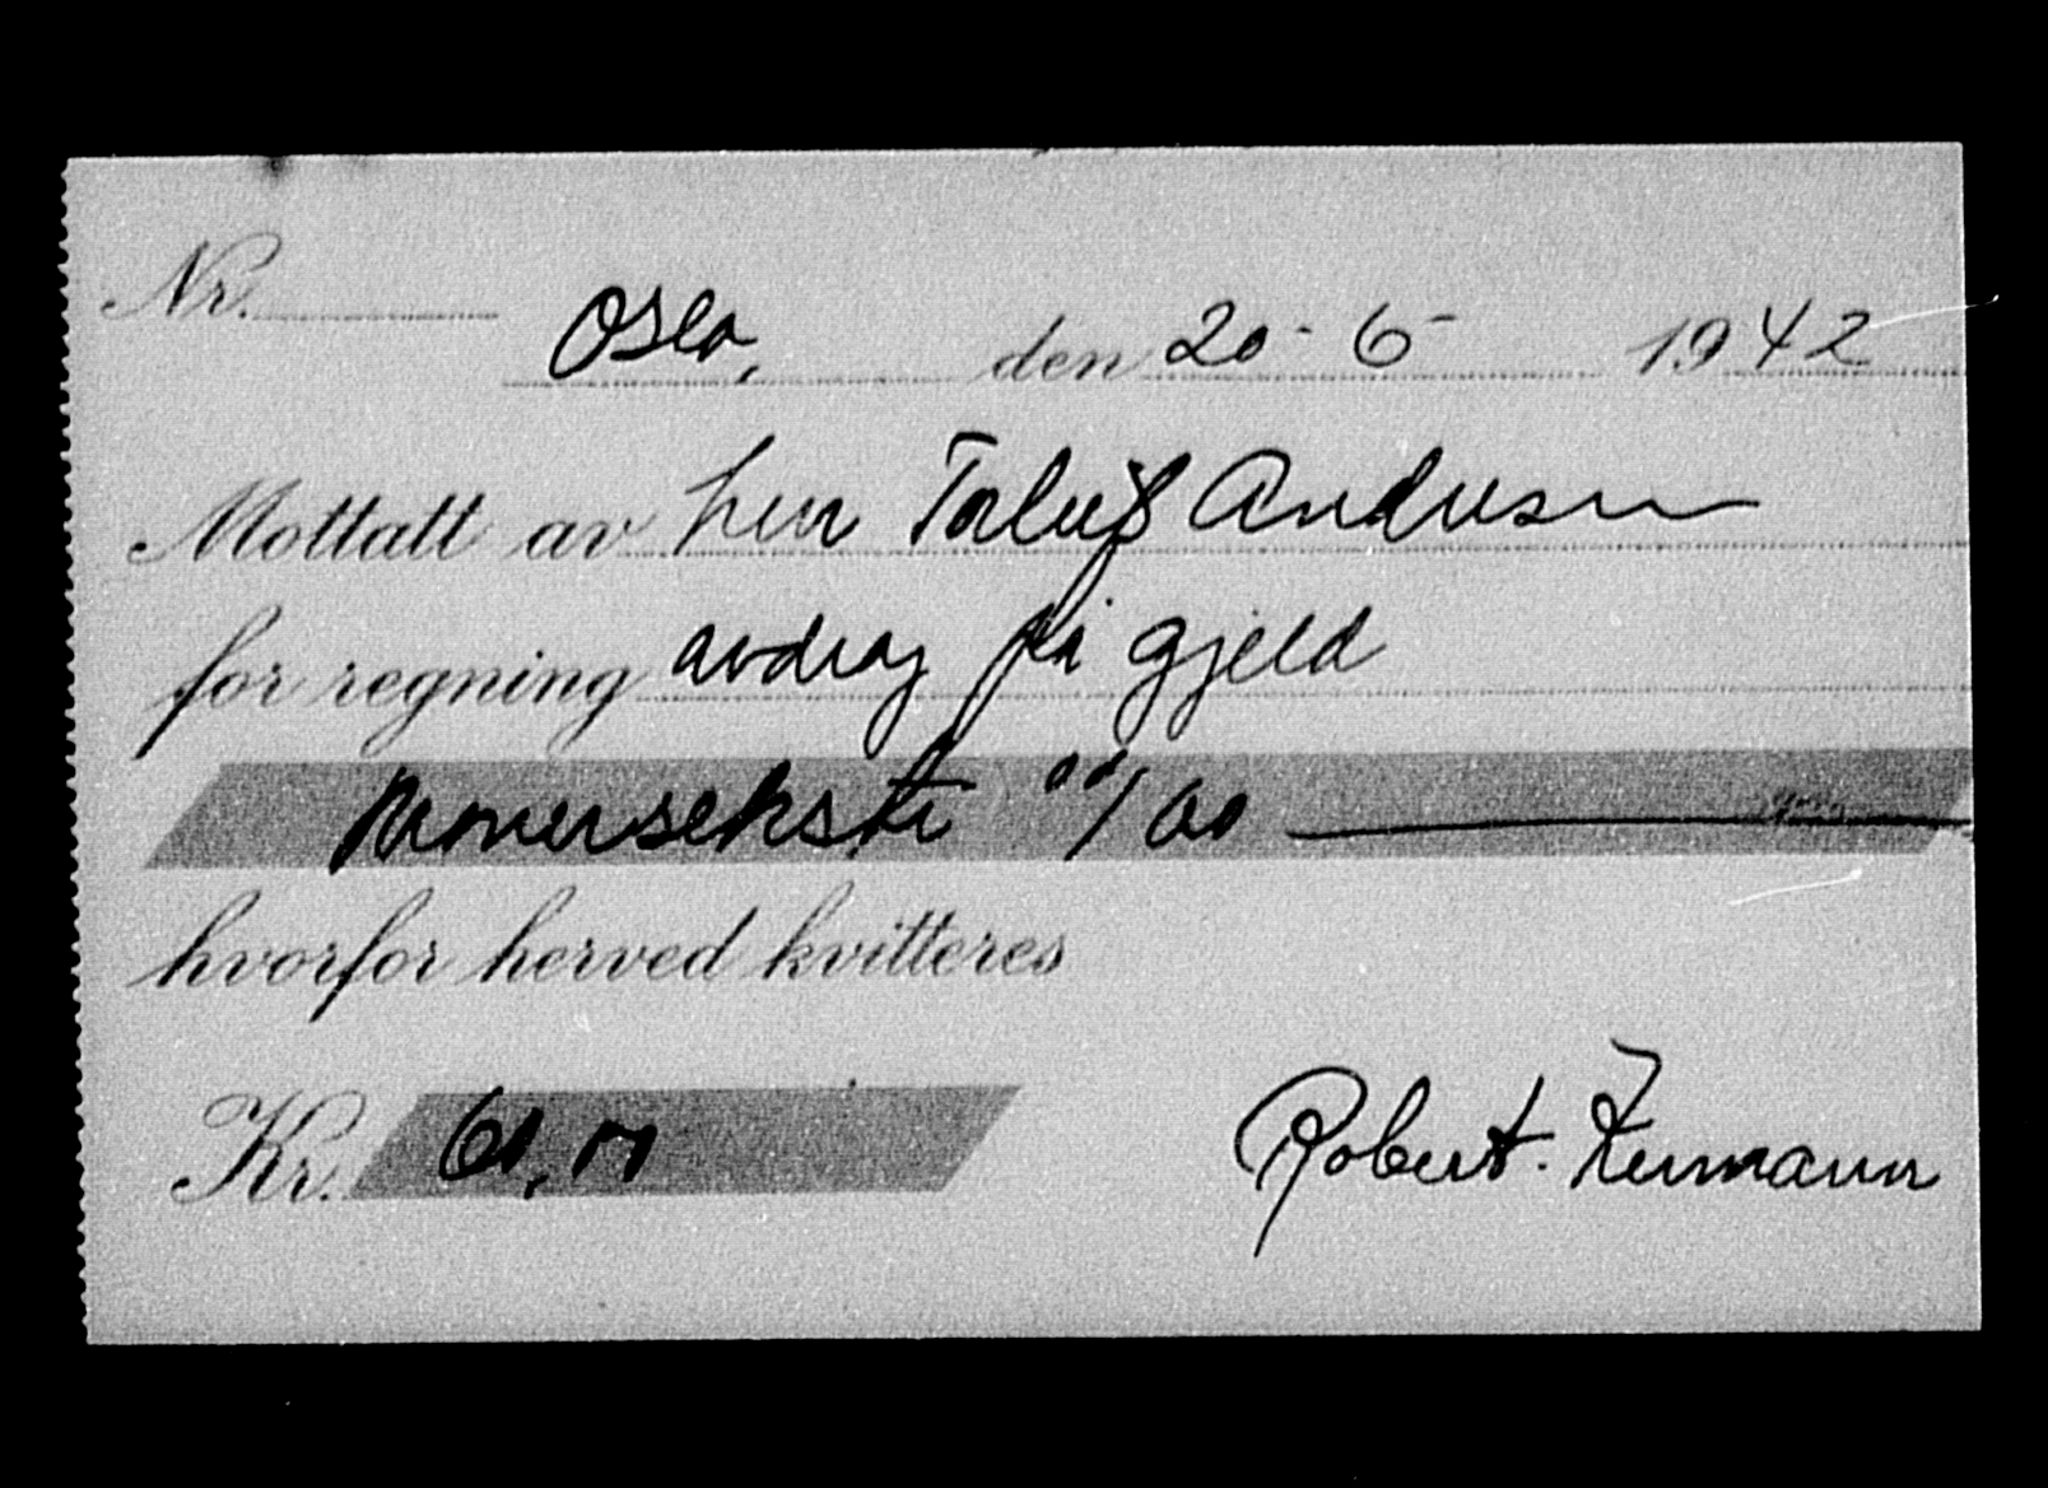 Nr.
Oslo, den 20-6- 1942
Mottatt av herr Toleif Andersen
for regning avdrag på gjeld
Kronerseksti 00/00
hvorfor herved kvitteres
Kr. 60,00
Robert.